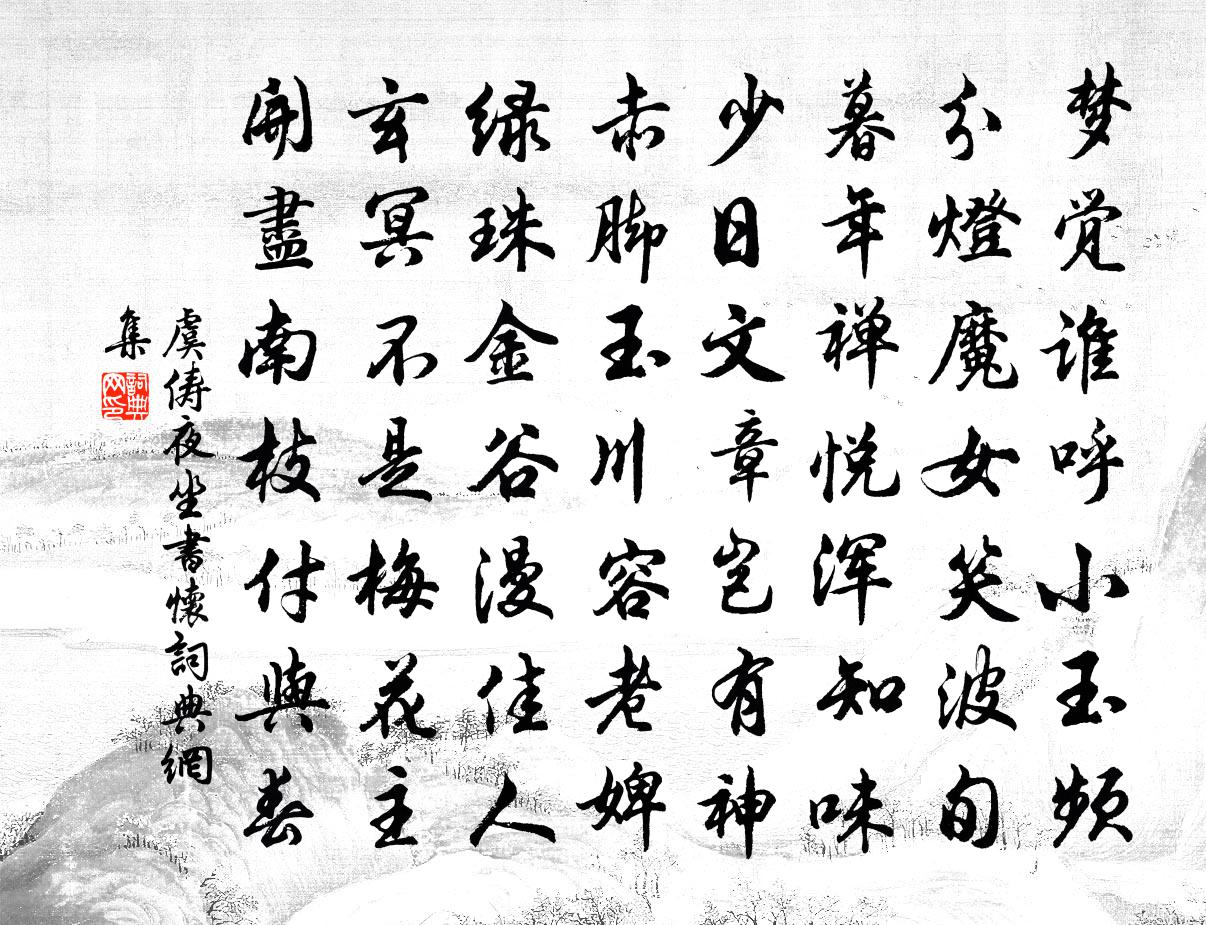 梦觉谁呼小玉频
分燈魔女笑波旬
暮年禅悦浑知味
少日文章岂有神
赤脚玉川容老婢
绿珠金谷漫佳人
玄冥不是梅花主
開盡南枝付與春
虞儔夜坐書懷詞典網
集
詞典
网印